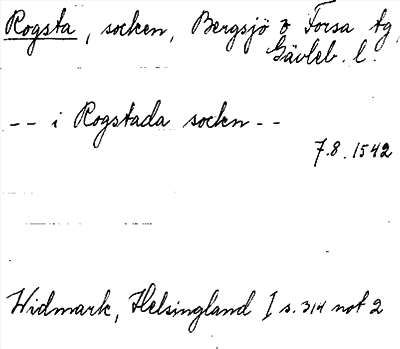 Rogsta, socken, Bergsjö o Forsa tg,
Gävleb. l.
-- i Rogstada socken --
7.8.1542
Widmark, Helsingland I s. 314 not 2